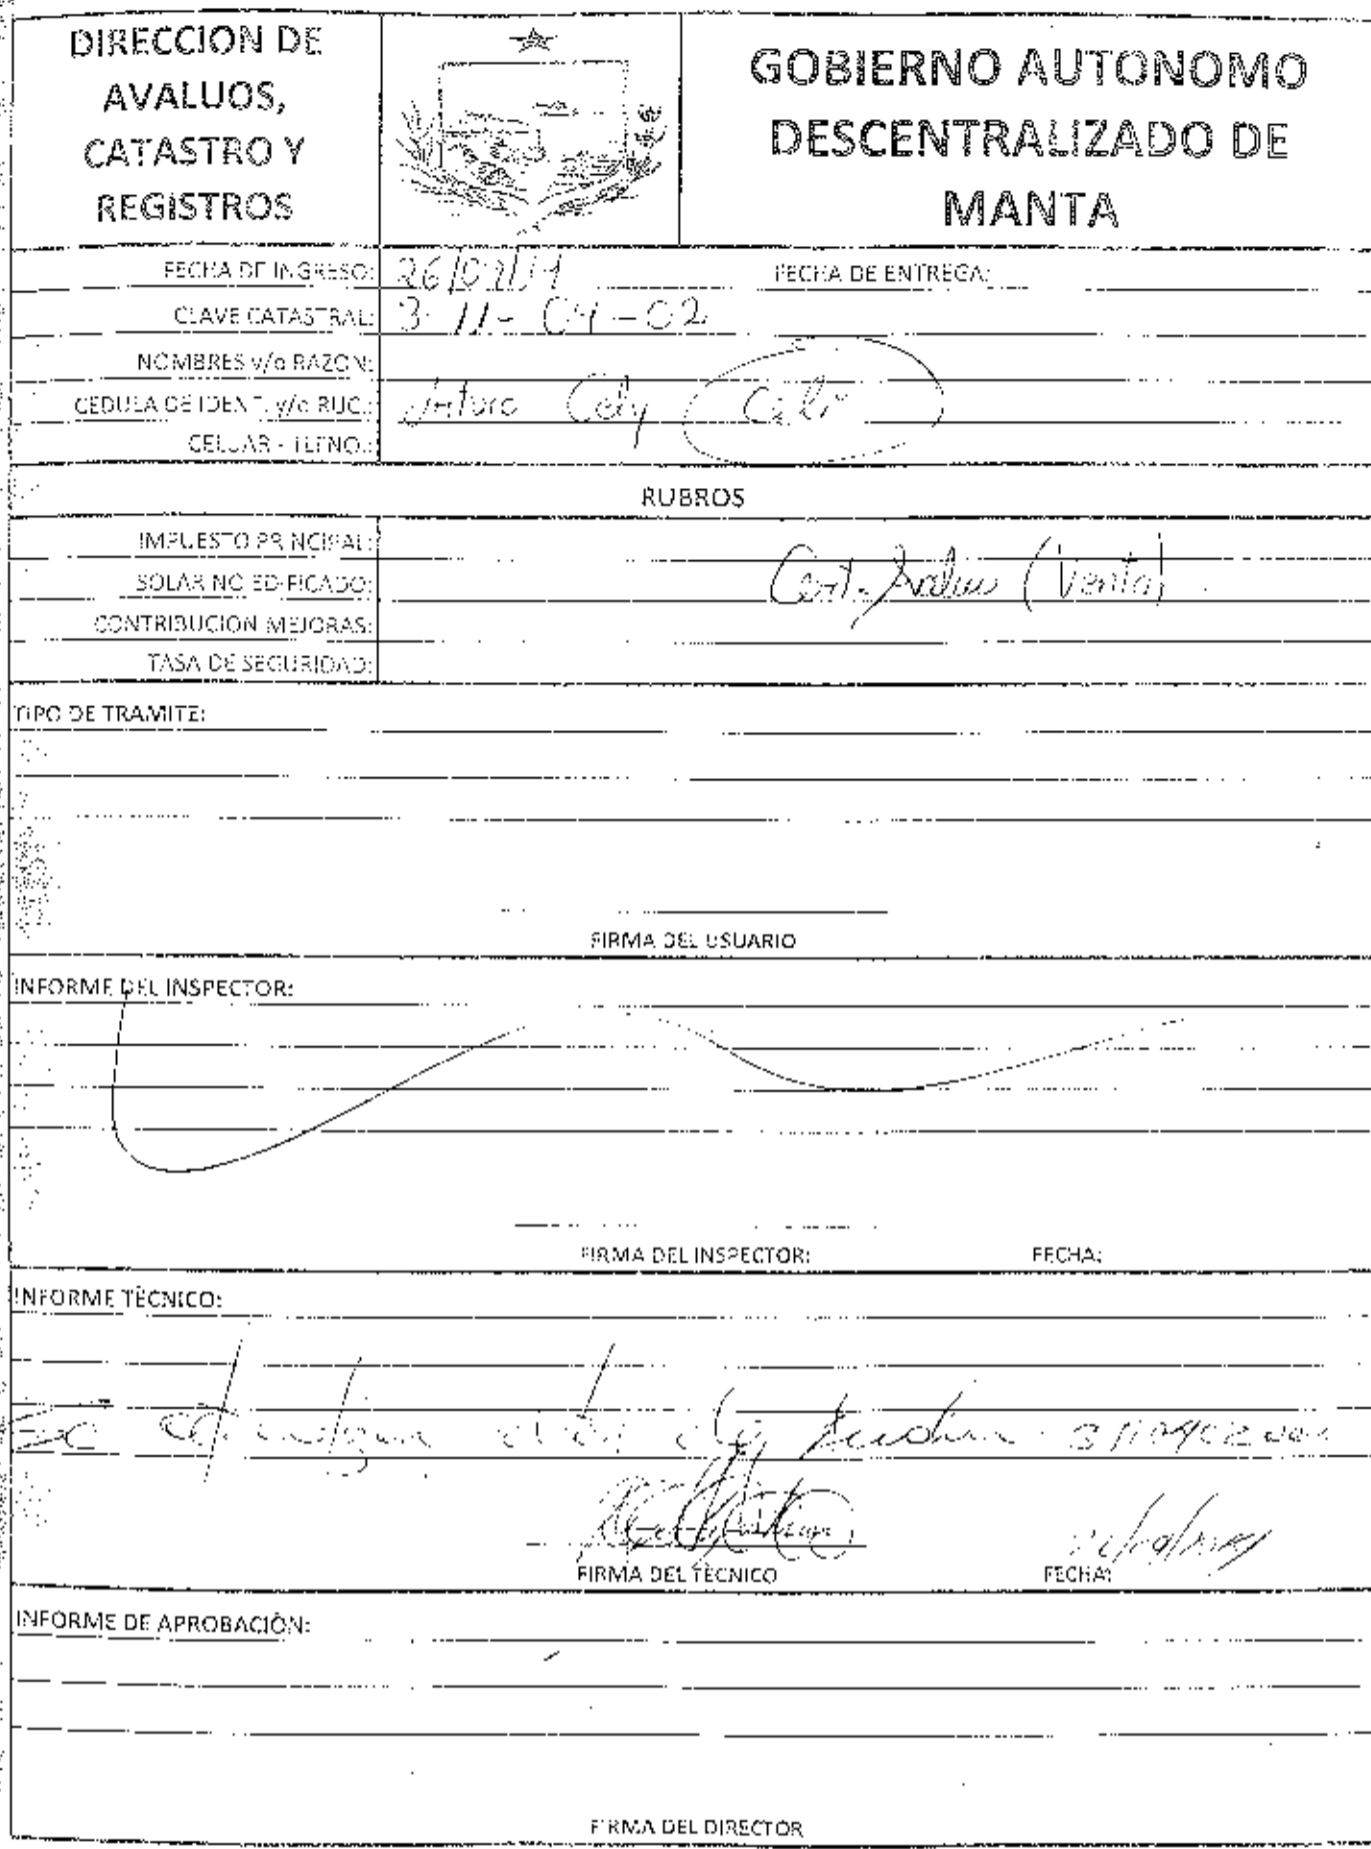 DIRECCION DE
AVALUOS,
CATASTRO Y
REGISTROS
GOBIERNO AUTONOMO
DESCENTRALIZADO DE
MANTA
FECHA DE INGRESO: 26/09/14 FECHA DE ENTREGA:
CLAVE CATASTRAL: 3-11-04-02
NOMBRES y/o RAZON:
CEDULA DE IDENT. y/o RUC.: Arturo Cely Celi
CELUAR - TLFNO.:
RUBROS
IMPUESTO PRINCIPAL:
SOLAR NO EDIFICADO: Cert. Avaluo (Venta)
CONTRIBUCION MEJORAS:
TASA DE SEGURIDAD:
TIPO DE TRAMITE:
FIRMA DEL USUARIO
INFORME DEL INSPECTOR:
FIRMA DEL INSPECTOR: FECHA:
INFORME TÉCNICO:
Se
FIRMA DEL TÉCNICO FECHA:
INFORME DE APROBACIÓN:
FIRMA DEL DIRECTOR